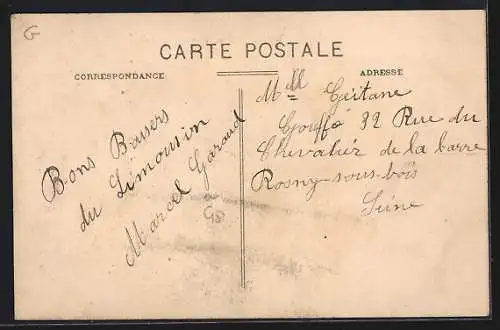 G
CARTE POSTALE
CORRESPONDANCE
ADRESSE
Bons Baisers
du Limousin
Marcel Garaud
Mlle Gaitane
Gouffé 32 Rue du
Chevalier de la barre
Rosny-sous-bois
Seine